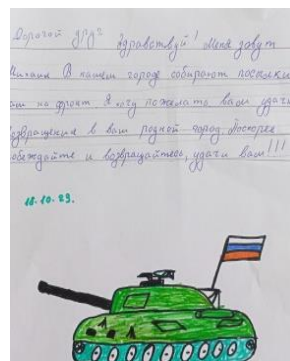 Дорогой друг
Здравствуй! Меня зовут
Михаил В нашем городе собирают посылки
на фронт Я хочу пожелать вам удачи
возвращения в ваш родной город Поскорее
побеждайте и возвращайтесь, удачи вам!!!
18.10.23.